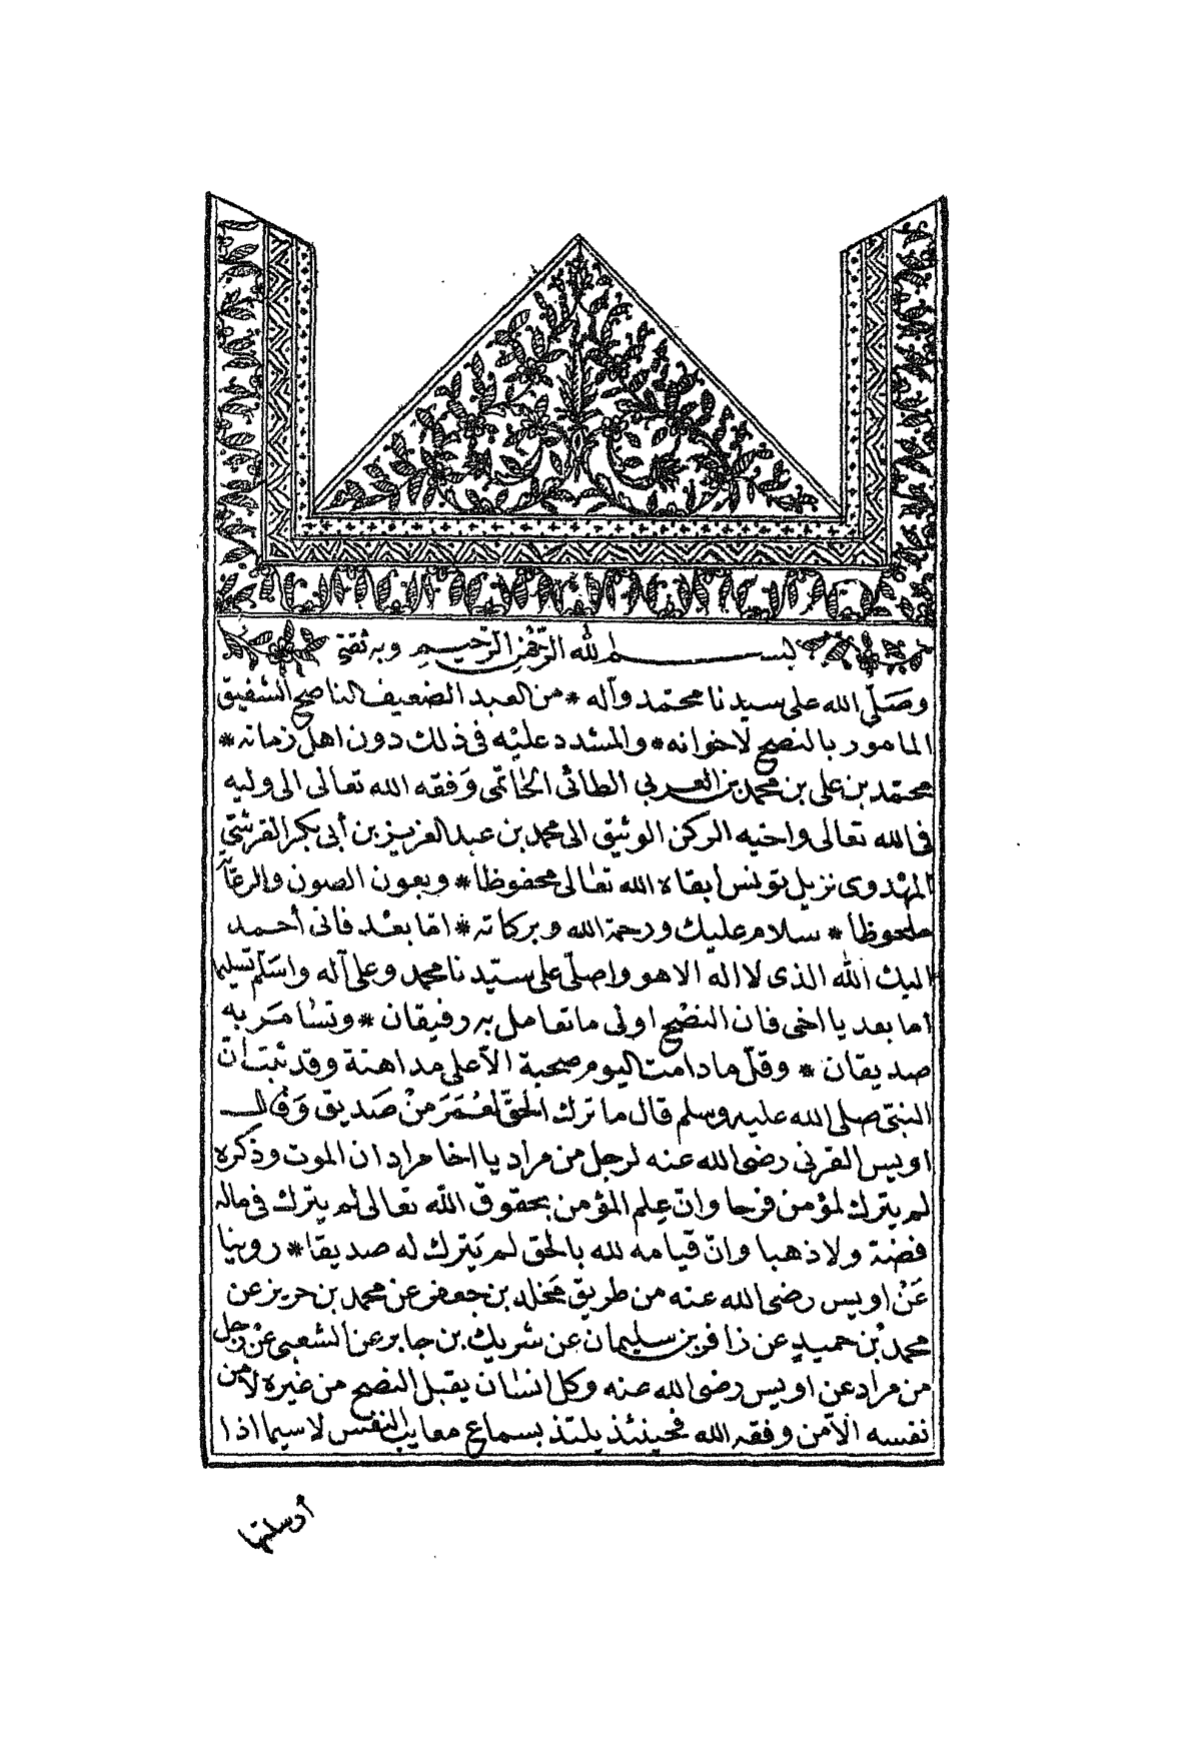 بسم الله الرحمن الرحيم وبه ثقتي
وَصَلَّى الله على سيدنا محمد وآله * من العبد الضعيف الناصح الشفيق
المامور بالنصح لاخوانه * والمشدد عليه فى ذلك دون اهل زمانه *
محمّد بن على بن محمد بن العربي الطائى الحاتمى وَفقه الله تعالى الى وليه
فى الله تعالى واخيه الركن الوثيق الى محمد بن عبد العزيز بن أبى بكر القرشىّ
المهْدوى نزيل بتونس أبقاه الله تعالى محفوظا * وبعون الصون والرعاَ
ملحوظا * سلام عليك ورحمة الله وبركاته * امّا بعْد فانى أحمد
اليك الله الذى لا اله الا هو واصلّى على سيّدنا محمد وعلى آله واسَلّم تسليما
اما بعد يا اخى فان النصْح اولى ما تعامل به رفيقان * وتسامَر به
صديقان * وقلّ ما دامت اليوم صحبة الاّ على مداهنة وقد ثبت انّ
النبىّ صلى الله عليه وسلم قال ما ترك الحقّ لعُمَرَ مِنْ صَديق وَقال
اويس القرنى رضى الله عنه لرجل من مراد يا اخا مراد ان الموت وذكره
لم يترك لمؤمن فرحا وانّ عِلم المؤمن بحقوق الله تعالى لم يترك فى ماله
فضة ولا ذهبا وانّ قيامه لله بالحق لم يَترك له صديقا * روينا
عَنْ اويس رضى الله عنه من طريق مَخلد بن جعفر عن محمد بن حريز عن
محمد بْن حميدٍ عن ذافر بن سليمان عن شريك بن جابر عن الشعبى عنْ رجل
من مراد عن اويس رضى الله عنه وكل انسان يقبل النصح من غيره لا من
نفسه الاّ من وفقه الله فحينئذ يلتذ بسماع معايب النفس لا سيما اذا
أرسلتها